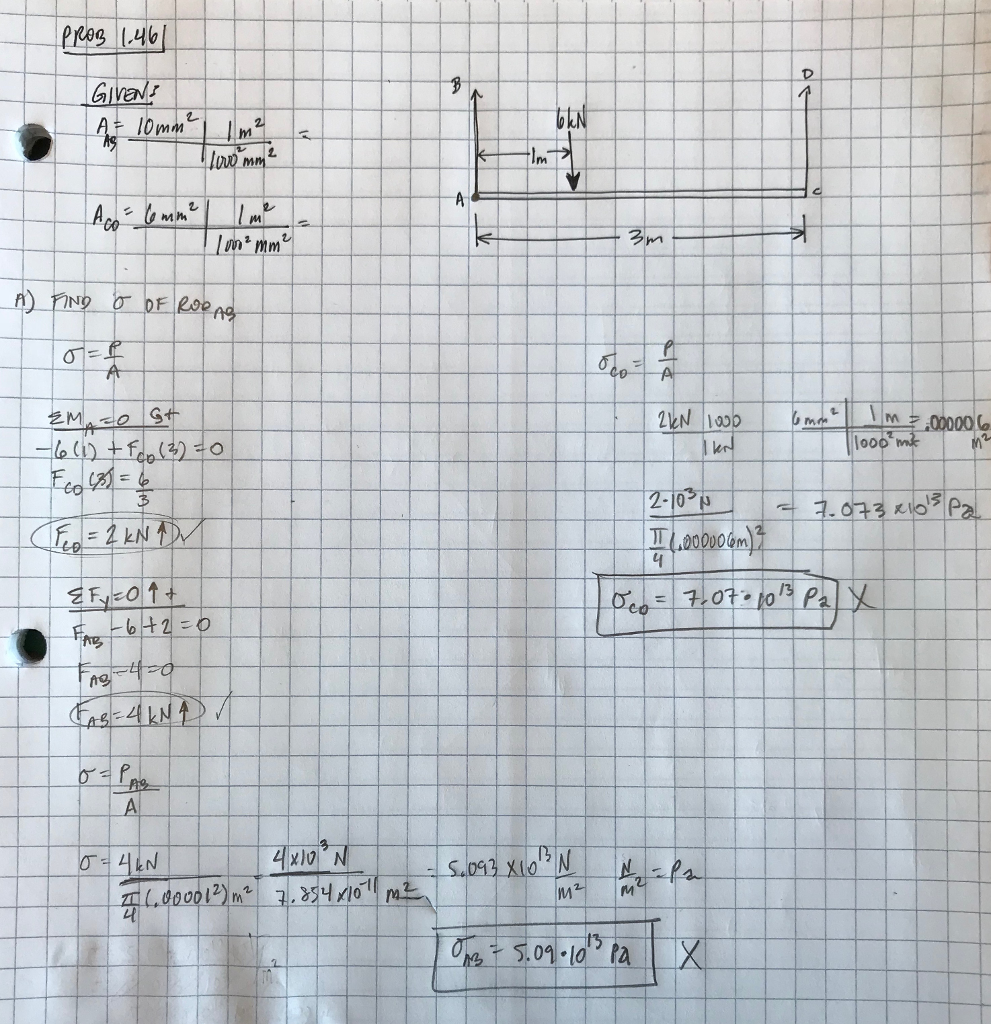 PROB 1.46
GIVEN:
A_AB = 10mm² | 1 m² / 1000² mm² =
A_CD = 6 mm² | 1 m² / 1000² mm² =
B
D
6kN
1m
A
C
3m
A) FIND σ OF ROD_AB
σ = P/A
ΣM_A = 0 ↺+
-6(1) + F_CD(3) = 0
F_CD (3) = 6/3
F_CD = 2 kN ↑ ✓
ΣF_y = 0 ↑ +
F_AB - 6 + 2 = 0
F_AB - 4 = 0
F_AB = 4 kN ↑ ✓
σ_CD = P/A
2kN | 1000 / 1kN
6mm² | 1 m / 1000² m² = .000006 m²
2·10³ N / π/4 (.000006m)² = 7.073 x10¹³ Pa
σ_CD = 7.07·10¹³ Pa X
σ = P_AB / A
σ = 4kN / π/4 (.00001²) m² = 4x10³ N / 7.854 x10⁻¹¹ m² = 5.093 x10¹³ N/m² N/m² = Pa
σ_AB = 5.09·10¹³ Pa X
m²